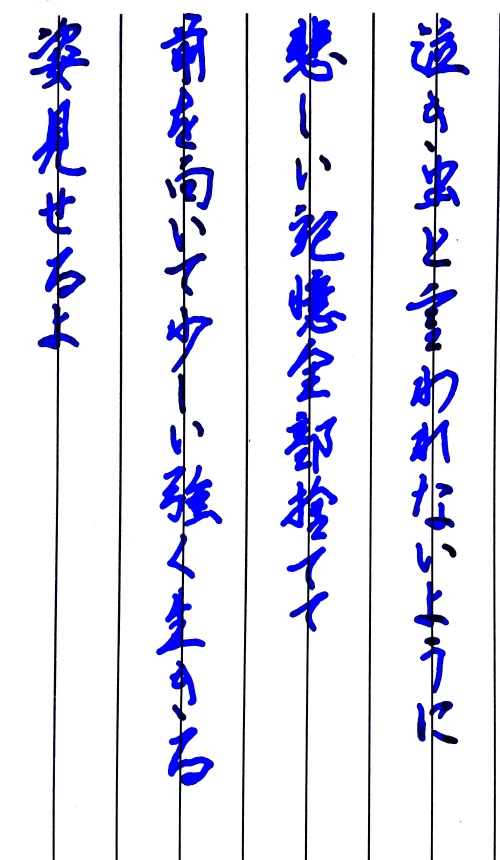 泣き虫と言われないように
悲しい記憶全部捨てて
前を向いて少しい強く生きる
姿見せるよ